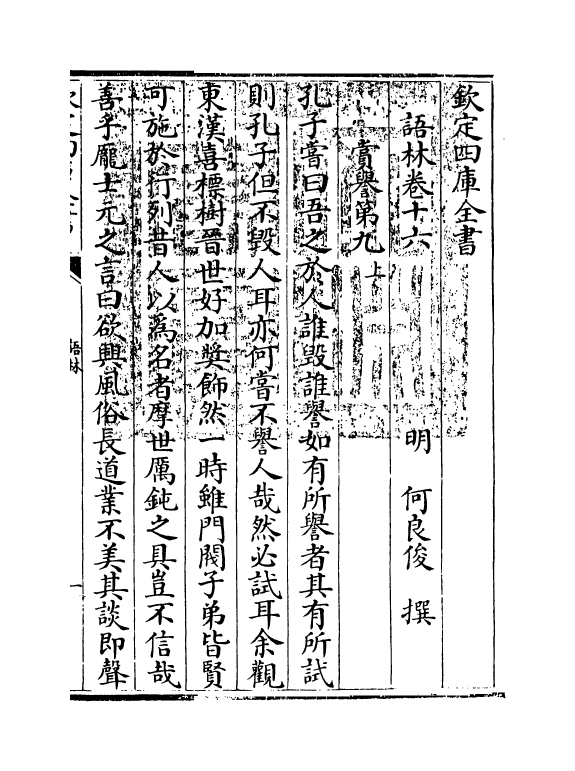 欽定四庫全書
語林卷十六
明 何良俊 撰
賞譽第九上
孔子嘗曰吾之於人誰毀誰譽如有所譽者其有所試
則孔子但不毀人耳亦何嘗不譽人哉然必試耳余觀
東漢喜標樹晉世好加奬飾然一時雖門閥子弟皆賢
可施於行列昔人以為名者摩世厲鈍之具豈不信哉
善乎龐士元之言曰欲興風俗長道業不美其談即聲
語林
一